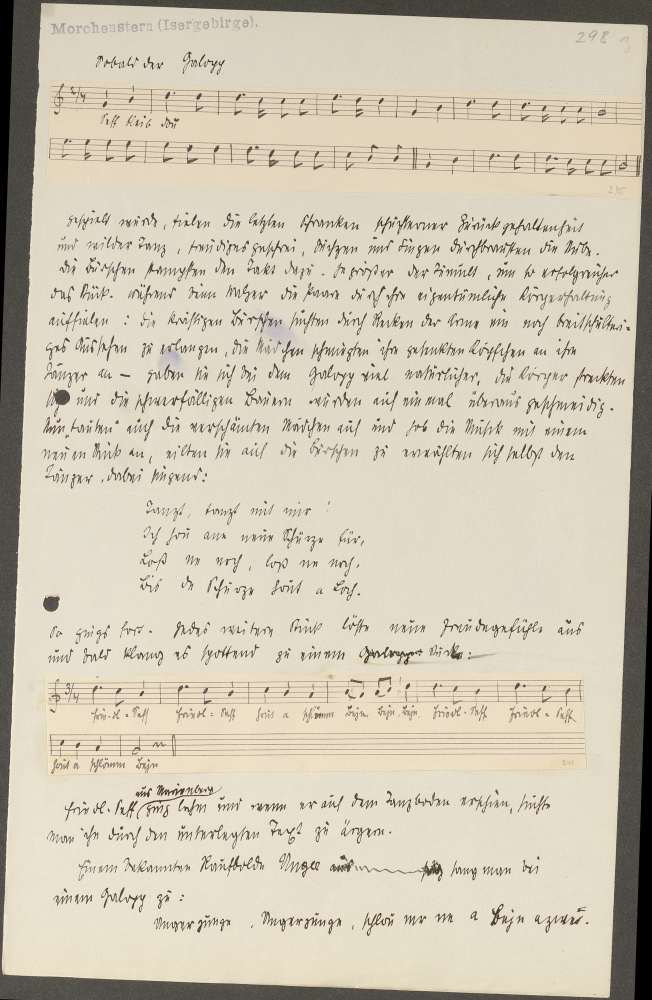 Morchenstern (Isergebirge).
298
Sobald der Galopp
2/4
Seff bleib dou
235
gespielt wurde, fielen die letzten Schranken schüchterner Zurückgehaltenheit
und wilder Tanz, freudiges Geschrei, Juchzen und Singen durchbrausten die Stube.
die Burschen stampften den Takt dazu. Je größer der Tumult, um so erfolgreicher
das Stück. Während beim Walzer die Paare durch ihre eigentümliche Körperhaltung
auffielen: die kräftigen Burschen suchten durch Recken der Arme ein noch breitschultri-
ges Aussehen zu erlangen, die Mädchen schmiegten ihre gesenkten Köpfchen an ihre
Tänzer an — gaben sie sich bei dem Galopp viel natürlicher, die Körper streckten
und die schwerfälligen Bauern wurden auf einmal überaus geschmeidig.
Nun "tauten" auch die verschämten Mädchen auf und hob die Musik mit einem
neuen Stück an, eilten sie auf die Burschen zu erwählten sich selbst den
Tänzer, dabei singend:
Tanzt, tanzt mit mir!
Ich hou ane neue Schürze für,
Loß ne noch, loß ne noch,
Bis de Schürze hout a Loch.
So gings fort. Jedes weitere Stück löste neue Freudegefühle aus
und bald klang es spottend zu einem Galopp Stücke:
3/4
Friedl-Seff Friedl-Seff hout a schlimm Bejn Bejn Bejn Friedl-Seff Friedl-Seff
hout a schlimm Bejn
241
aus Marienberg
Friedl-Seff ging lahm und wenn er auf dem Tanzboden erschien, suchte
man ihn durch den unterlegten Text zu ärgern.
Einem bekannten Raufbolde Unger sang man bei
einem Galopp zu:
Ungerjunge, Ungerjunge, schlou mr ne a Bejn azwee.